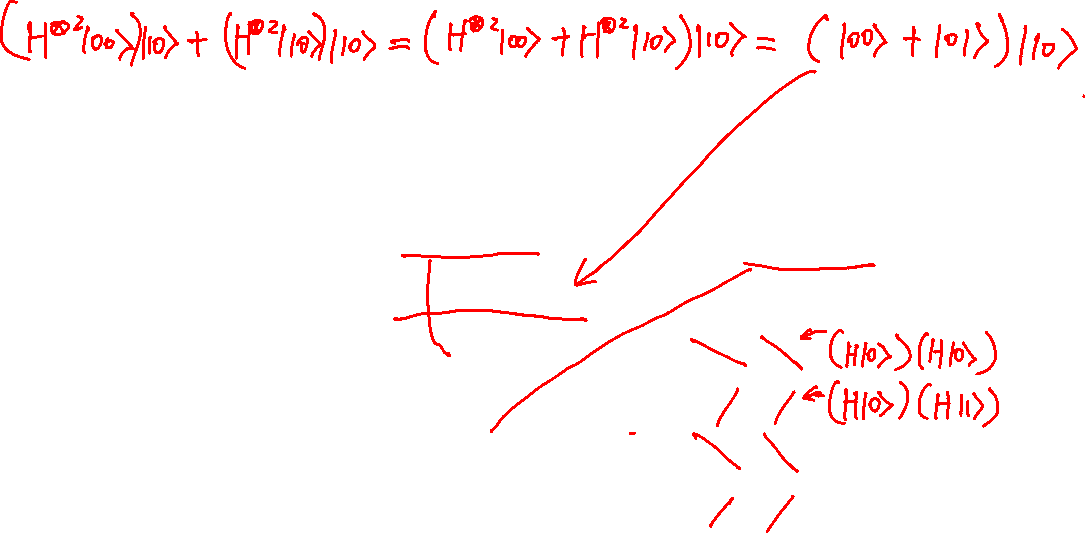 (H⊗2|00⟩)|10⟩ + (H⊗2|10⟩)|10⟩ = (H⊗2|00⟩ + H⊗2|10⟩)|10⟩ = (|00⟩ + |01⟩)|10⟩
(H|0⟩)(H|0⟩)
(H|0⟩)(H|1⟩)